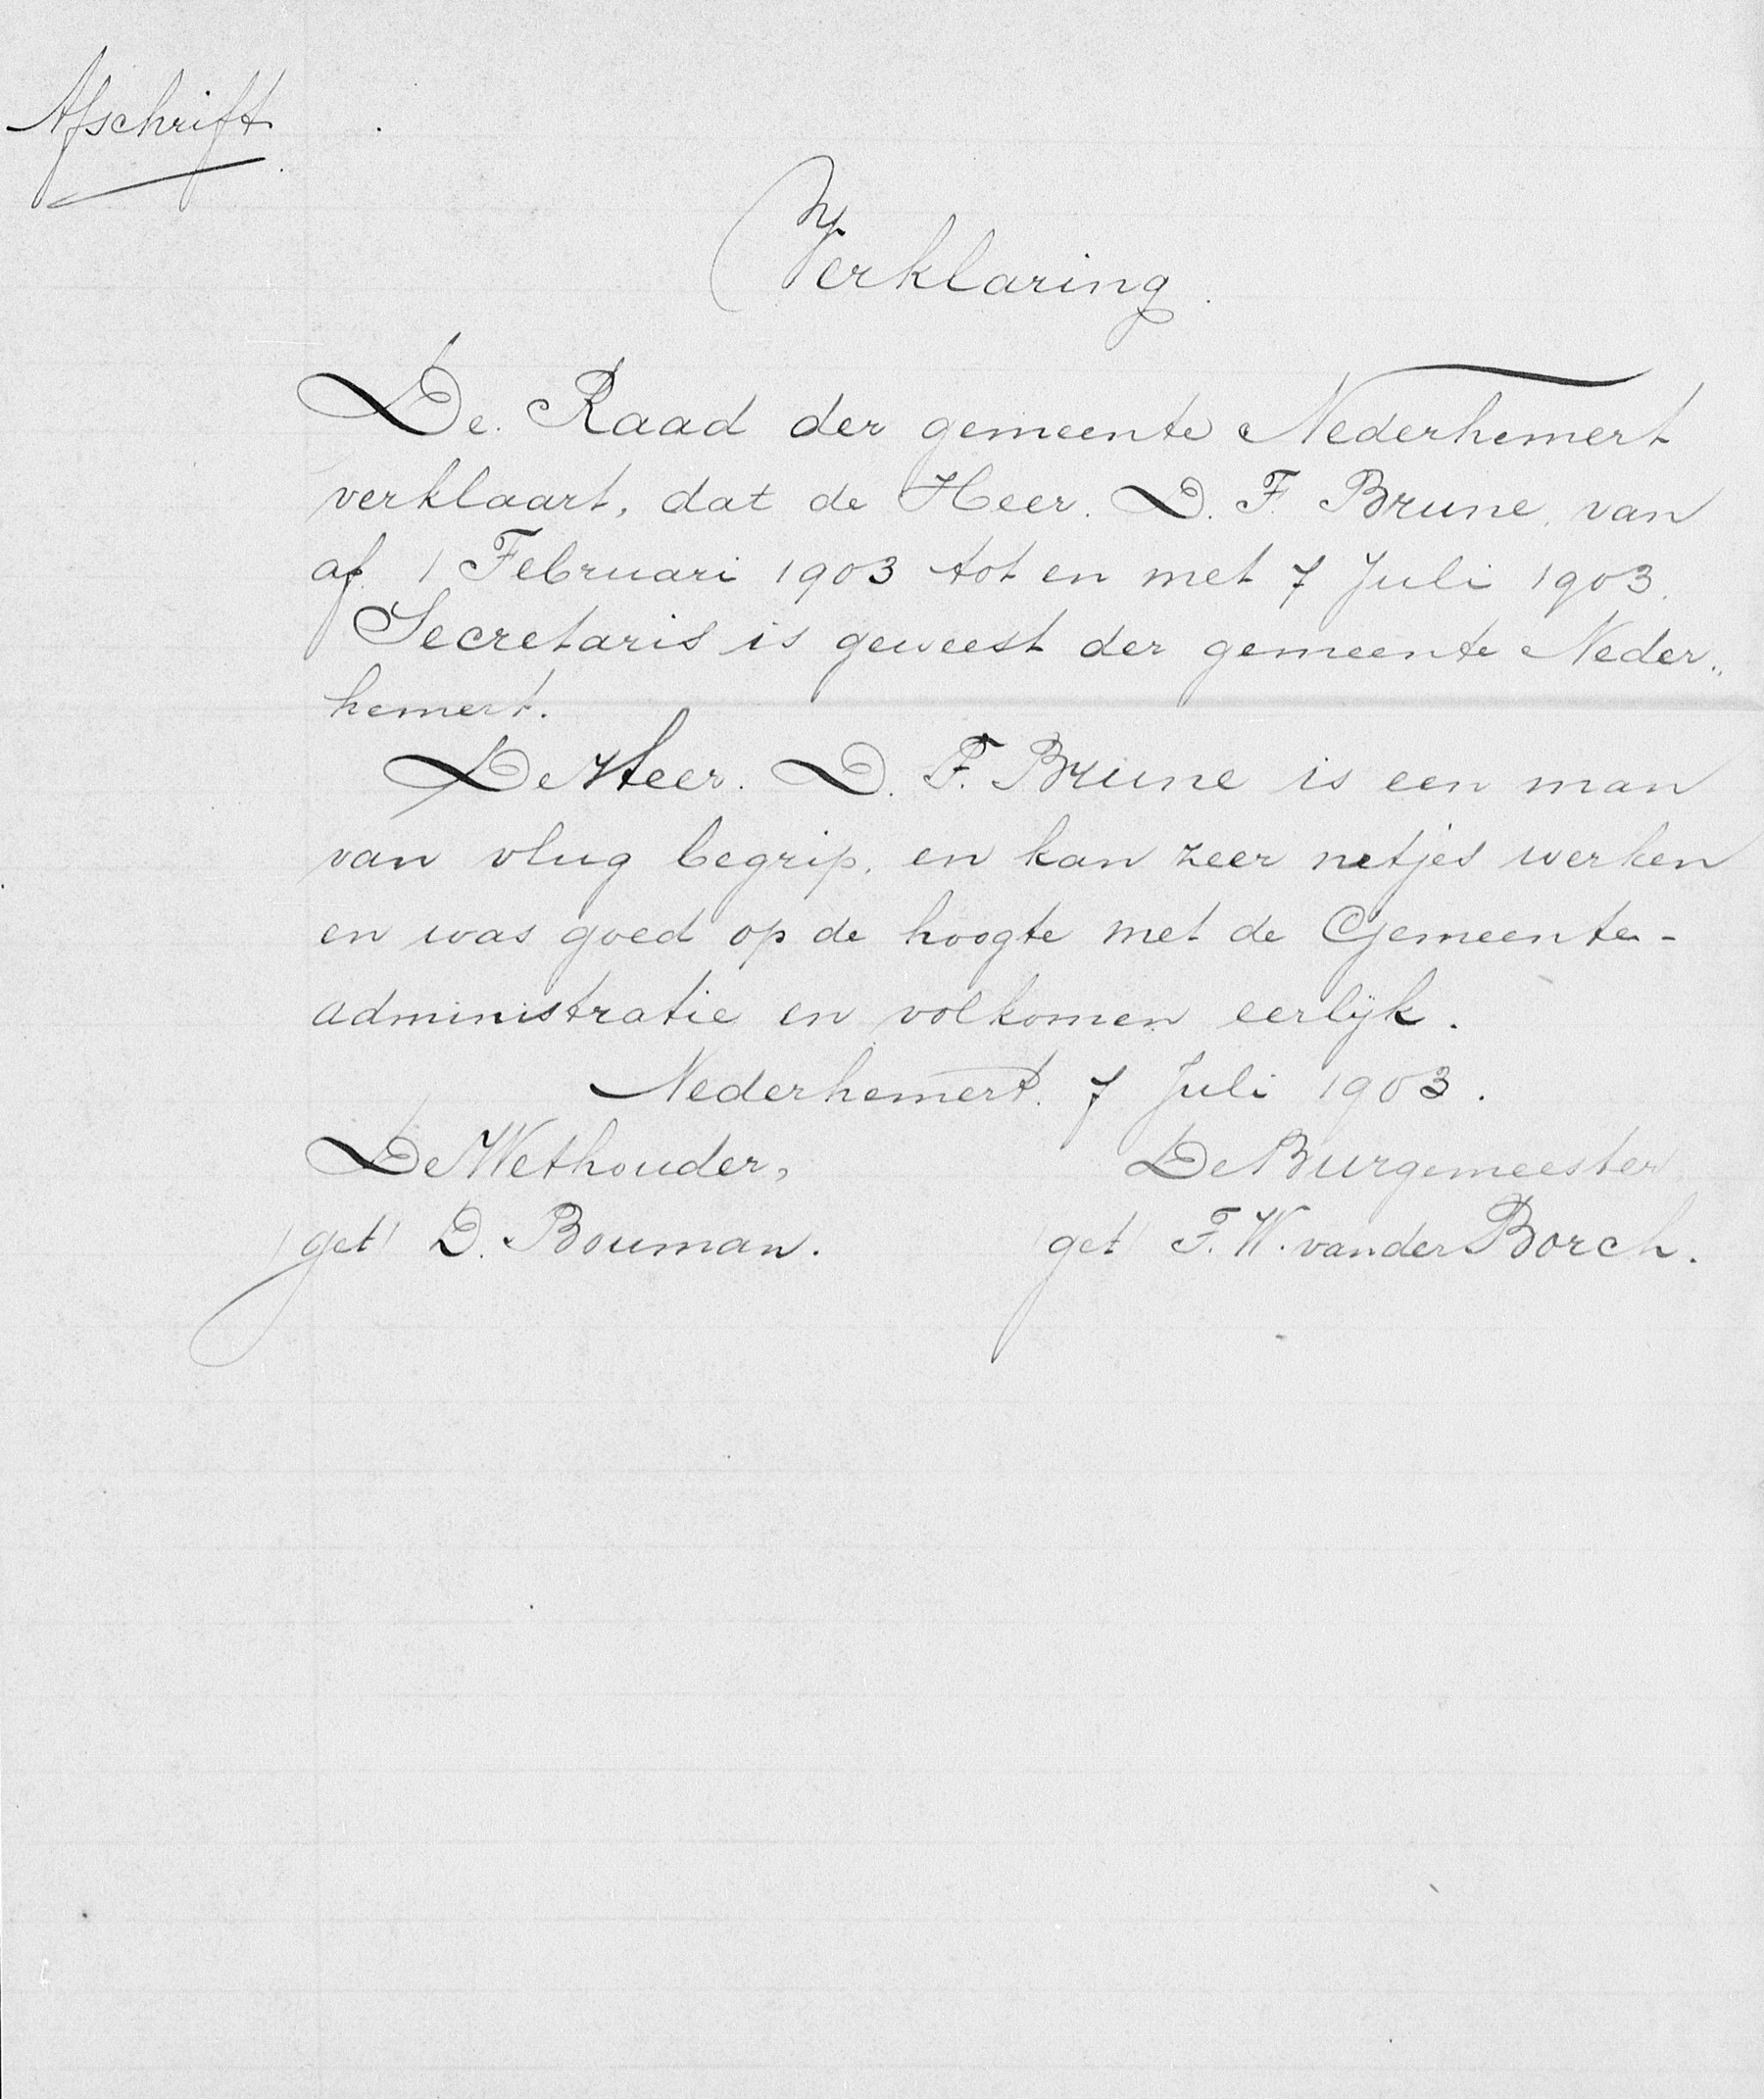 Afschrift.
Verklaring.
De. Raad der gemeente Nederhemert
verklaart, dat de Heer. D. F. Brune, van
af. 1 Februari 1903 tot en met 7 Juli 1903.
Secretaris is geweest der gemeente Neder„
hemert.
De Heer. D. F. Brune is een man
van vlug begrip, en kan zeer netjes werken
en was goed op de hoogte met de Gemeente-
administratie en volkomen eerlijk.
Nederhemert. 7 Juli 1903.
De Wethouder, De Burgemeester
(get) D. Bouman. (get) F. W. van der Borch.